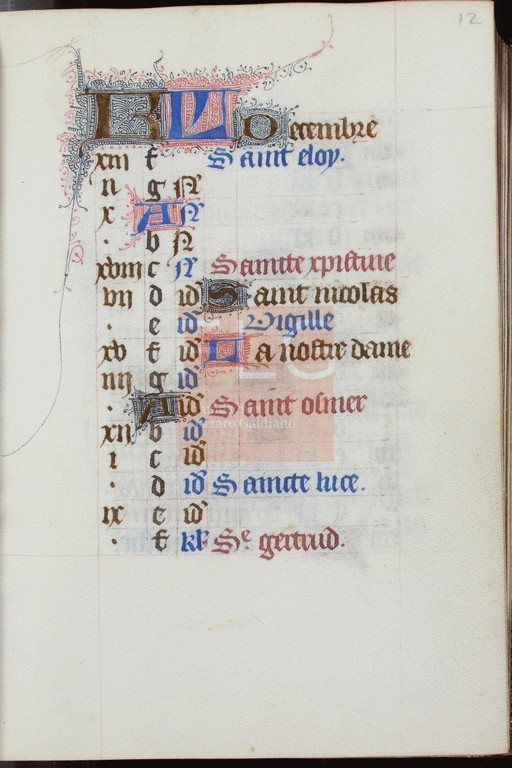 12
KL Decembre
xiii f Saint eloy.
ii g N
x A N
. b N
xviii c N Saincte xpistine
vii d id Saint nicolas
. e id Vigille
xv f id La nostre dame
iiii g id
. A id Saint osmer
xii b id
i c id
. d id Saincte luce.
ix e id
. f kl Se gertrud.
Lázaro Galdiano